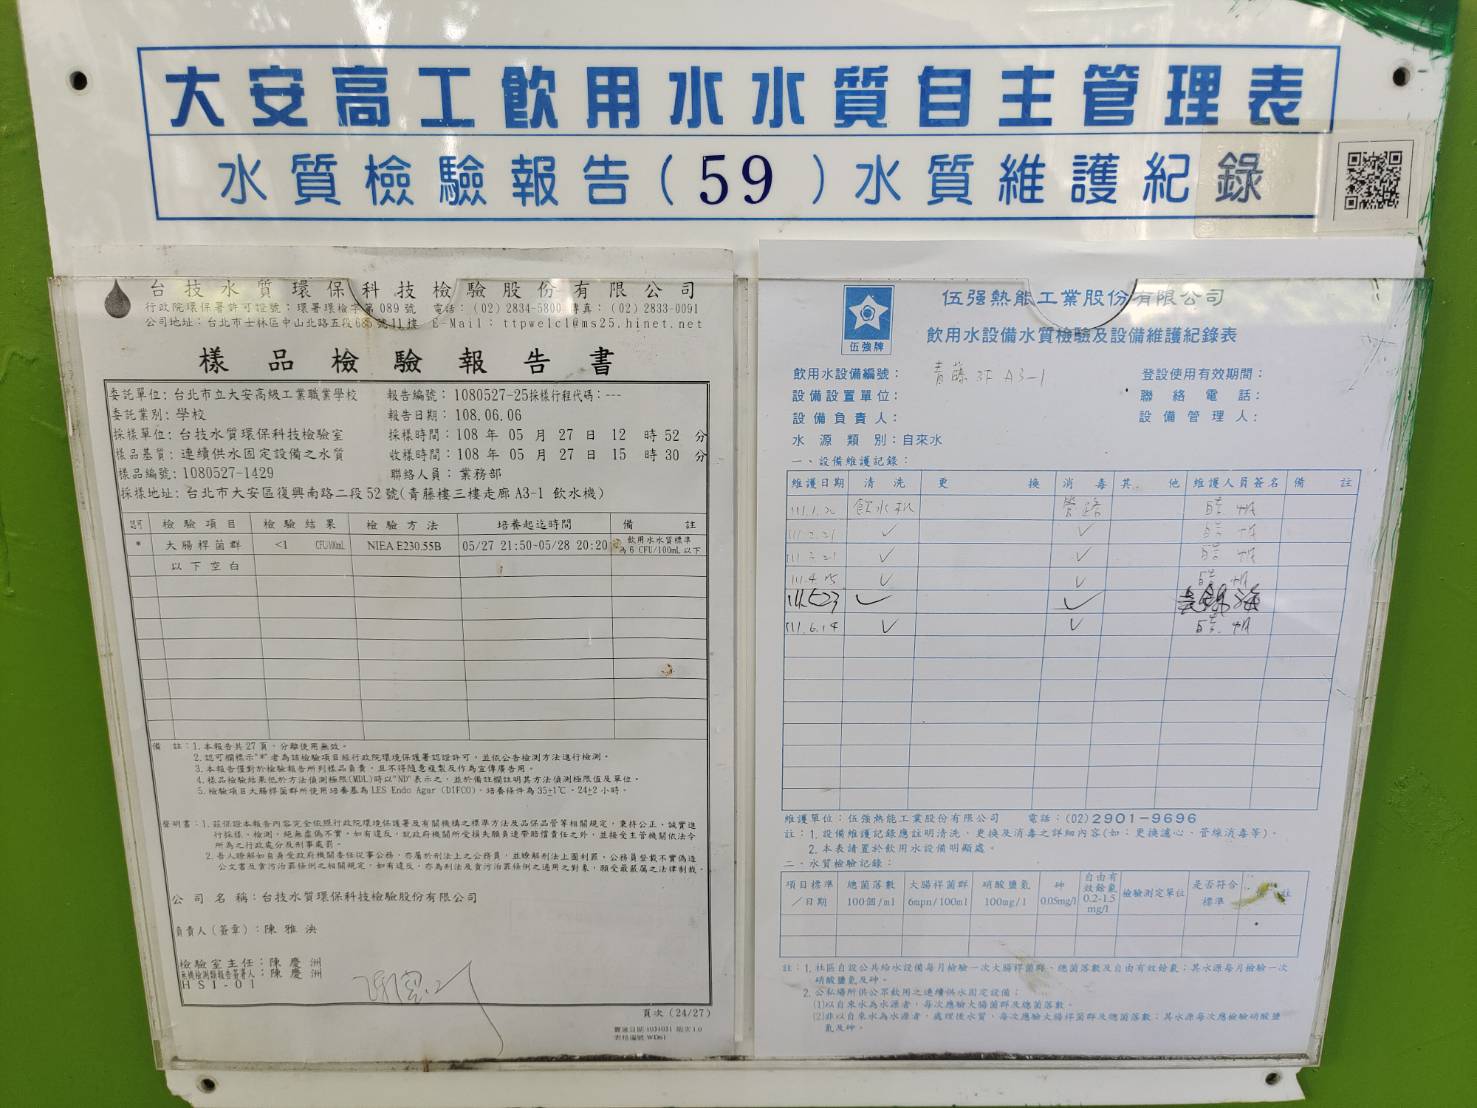 大安高工飲用水水質自主管理表
水質檢驗報告(59)水質維護紀錄
台技水質環保科技檢驗股份有限公司
行政院環保署許可證號：環署環檢字第089號 電話：(02)2834-5800 傳真：(02)2833-0091
公司地址：台北市士林區中山北路五段685號11樓 E-Mail：ttpwelcl@ms25.hinet.net
樣品檢驗報告書
委託單位：台北市立大安高級工業職業學校 報告編號：1080527-25採樣行程代碼：---
委託業別：學校 報告日期：108.06.06
採樣單位：台技水質環保科技檢驗室 採樣時間：108年05月27日12時52分
樣品基質：連續供水固定設備之水質 收樣時間：108年05月27日15時30分
樣品編號：1080527-1429 聯絡人員：業務部
採樣地址：台北市大安區復興南路二段52號(青藤樓三樓走廊A3-1 飲水機)
認可 檢驗項目 檢驗結果 檢驗方法 培養起迄時間 備註
* 大腸桿菌群 <1 CFU/100mL NIEA E230.55B 05/27 21:50~05/28 20:20 飲用水水質標準
為6 CFU/100mL以下
以下空白
備註：1.本報告共27頁，分離使用無效。
2.認可欄標示"*"者為該檢驗項目經行政院環境保護署認證許可，並依公告檢測方法進行檢測。
3.本報告僅對於檢驗報告所列樣品負責，且不得隨意複製及作為宣傳廣告用。
4.樣品檢驗結果低於方法偵測極限(MDL)時以"ND"表示之，並於備註欄註明其方法偵測極限值及單位。
5.檢驗項目大腸桿菌群所使用培養基為LES Endo Agar (DIFCO)，培養條件為35±1℃，24±2小時。
聲明書：1.茲保證本報告內容完全依照行政院環境保護署及有關機構之標準方法及品保品管等相關規定，秉持公正、誠實進
行採樣、檢測，絕無虛偽不實，如有違反，就政府機關所受損失願負連帶賠償責任之外，並接受主管機關依法令
所為之行政處分及刑事處罰。
2.吾人瞭解如自身受政府機關委任從事公務，亦屬於刑法上之公務員，並瞭解刑法上圖利罪、公務員登載不實偽造
公文書及貪污治罪條例之相關規定，如有違反，亦為刑法及貪污治罪條例之適用之對象，願受最嚴厲之法律制裁。
公司名稱：台技水質環保科技檢驗股份有限公司
負責人(簽章)：陳雅泱
檢驗室主任：陳慶洲
無機檢測類報告簽署人：陳慶洲
HSI-01
頁次(24/27)
伍强牌
伍强熱能工業股份有限公司
飲用水設備水質檢驗及設備維護紀錄表
飲用水設備編號：青藤3F A3-1 登設使用有效期間：
設備設置單位： 聯絡電話：
設備負責人： 設備管理人：
水源類別：自來水
一、設備維護記錄：
維護日期 清洗 更換 消毒 其他 維護人員簽名 備註
飲水机 管路
111.2.21 ✓ ✓
111.3.21 ✓ ✓
111.4.25 ✓ ✓
111.5.23 ✓ ✓
111.6.14 ✓ ✓
維護單位：伍强熱能工業股份有限公司 電話：(02)2901-9696
註：1.設備維護記錄應註明清洗、更換及消毒之詳細內容(如：更換濾心、管線消毒等)。
2.本表請置於飲用水設備明顯處。
二、水質檢驗記錄：
項目標準／日期 總菌落數 100個/ml 大腸桿菌群 6mpn/100ml 硝酸鹽氮 100mg/l 砷 0.05mg/l 自由有效餘氯 0.2-1.5 mg/l 檢驗測定單位 是否符合標準 註
註：1.社區自設公共給水設備每月檢驗一次大腸桿菌群、總菌落數及自由有效餘氯；其水源每月檢驗一次
硝酸鹽氮及砷。
2.公私場所供公眾飲用之連續供水固定設備：
(1)以自來水為水源者，每次應驗大腸菌群及總菌落數。
(2)非以自來水為水源者，處理後水質，每次應驗大腸桿菌群及總菌落數；其水源每次應檢驗硝酸鹽
氮及砷。